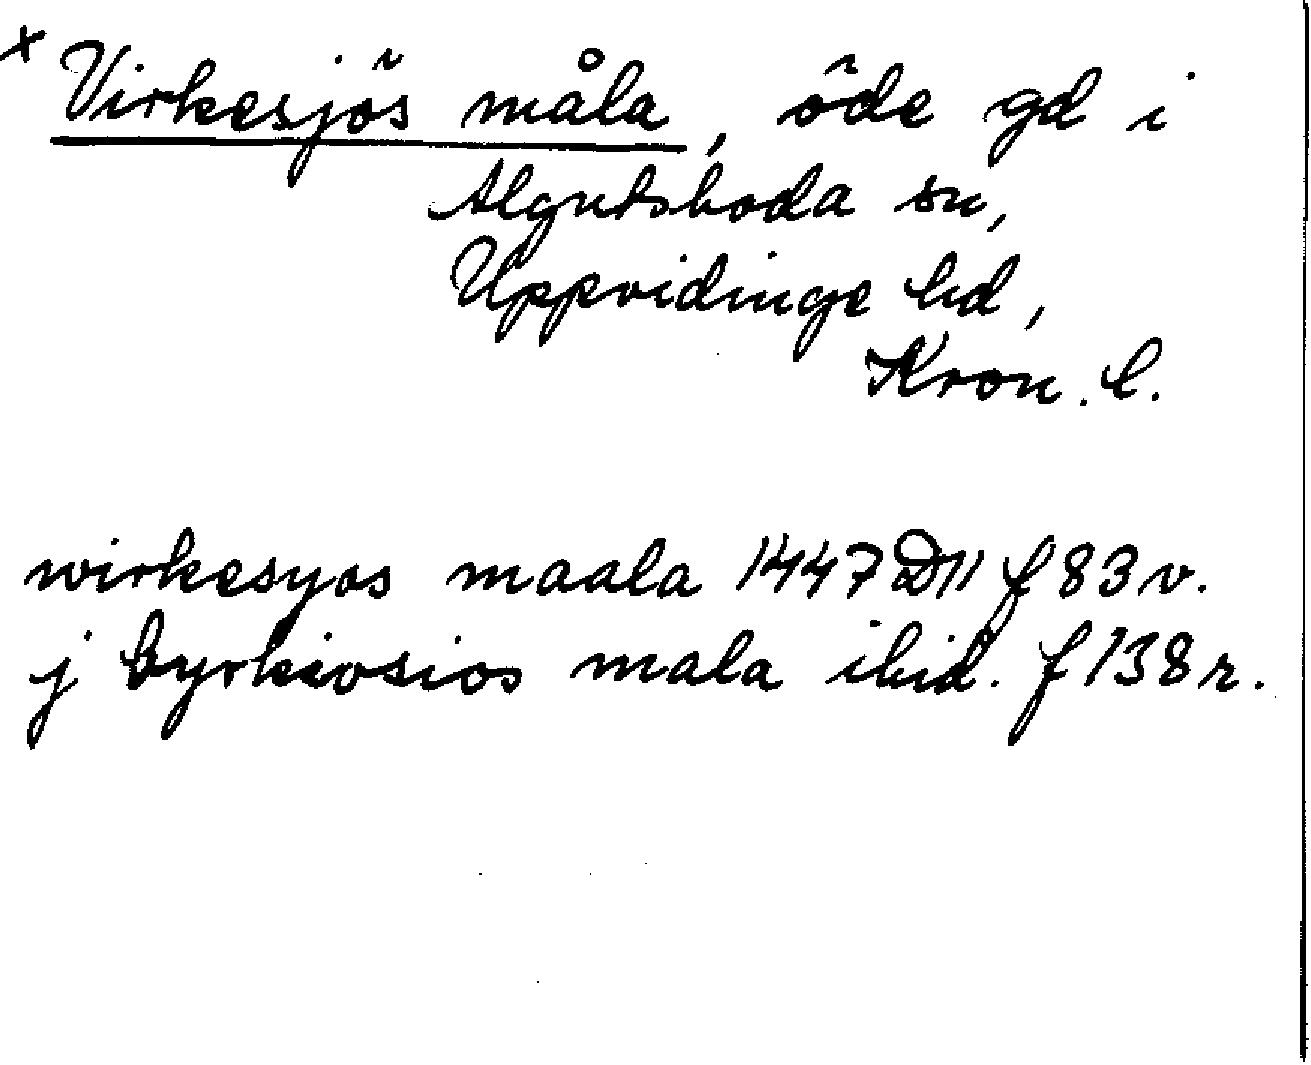 x Virkesjös måla, öde gd i
Algutsboda sn,
Uppvidinge hd,
Kron. l.
wirkesyos maala 1447 D11 f 83 v.
j byrkiosios mala ibid. f 138 r.